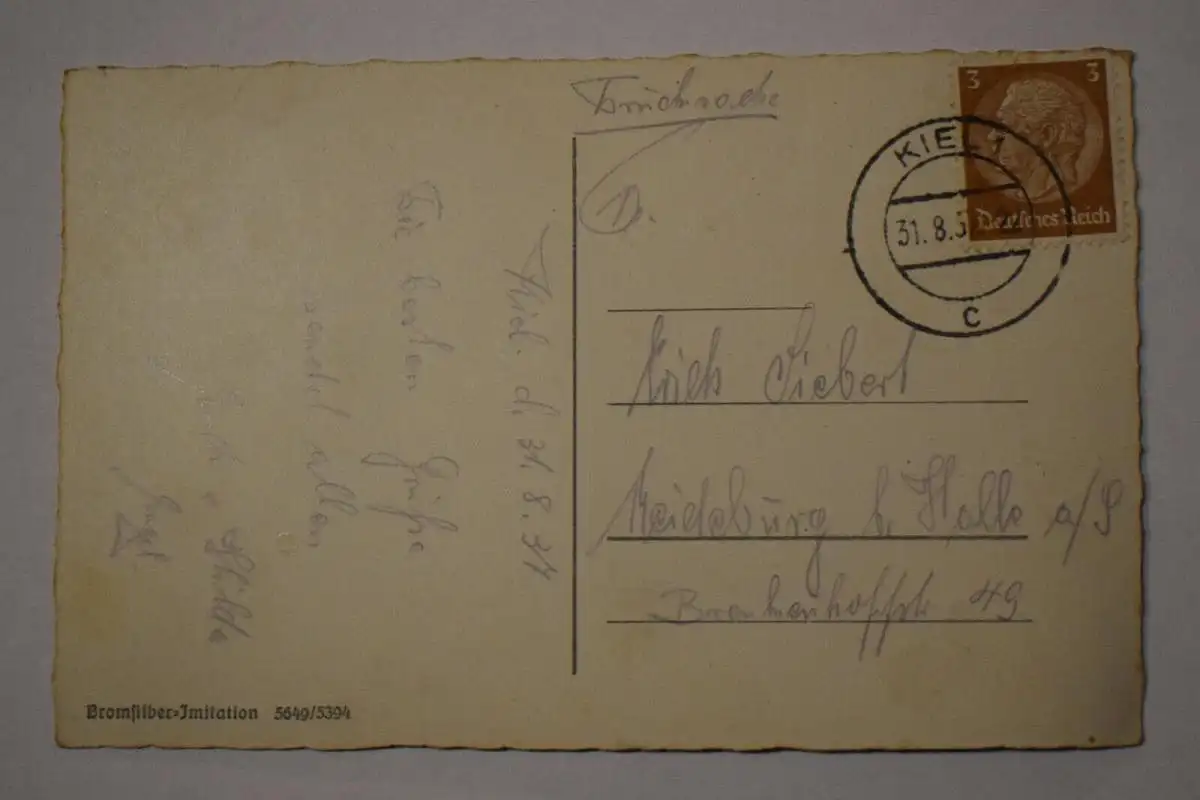 Drucksache
3 3
Deutsches Reich
KIEL 1
31. 8. 3
c
Erich Siebert
Reideburg b. Halle a/S
49
Kiel. d. 31. 8. 37
Die besten Grüße
sendet allen
Hilda
Bromsilber=Imitation 5649/5394